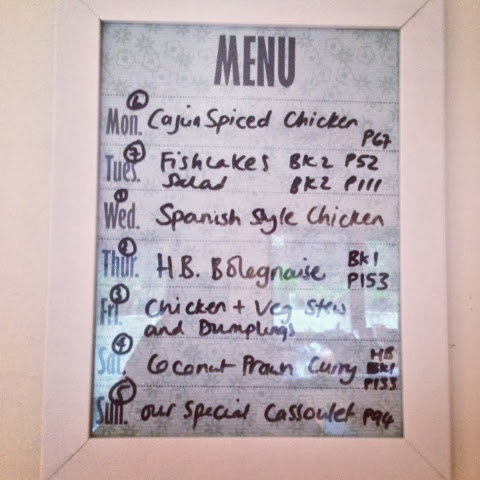 MENU
6
Mon. Cajun Spiced Chicken
P67
7
Tues. Fishcakes BK2 P52
Salad BK2 P111
1
Wed. Spanish Style Chicken
2
Thur. H.B. Bolegnaise BK1
P153
3
Fri. Chicken + Veg Stew
and Dumplings
4
Sat. Coconut Prawn Curry HB
BK1
P133
5
Sun. our special Cassoulet P94